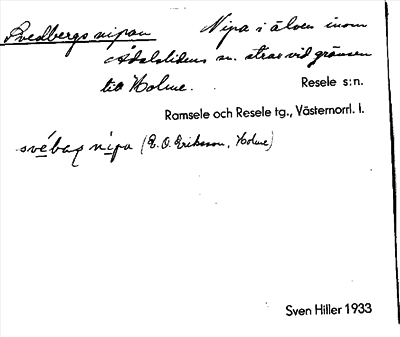 Svedbergs nipan Nipa i älven inom
Ådalslidens sn. strax vid gränsen
till Holme. Resele s:n.
Ramsele och Resele tg., Västernorrl. l.
svébaɡ nipa (E. O. Eriksson, Holme)
Sven Hiller 1933